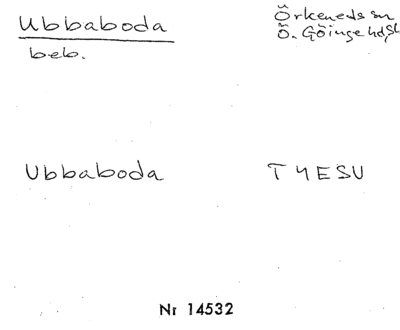 Ubbaboda
Örkeneds sn
beb.
Ö. Göinge hd, Sk
Ubbaboda
T4ESU
Nr 14532